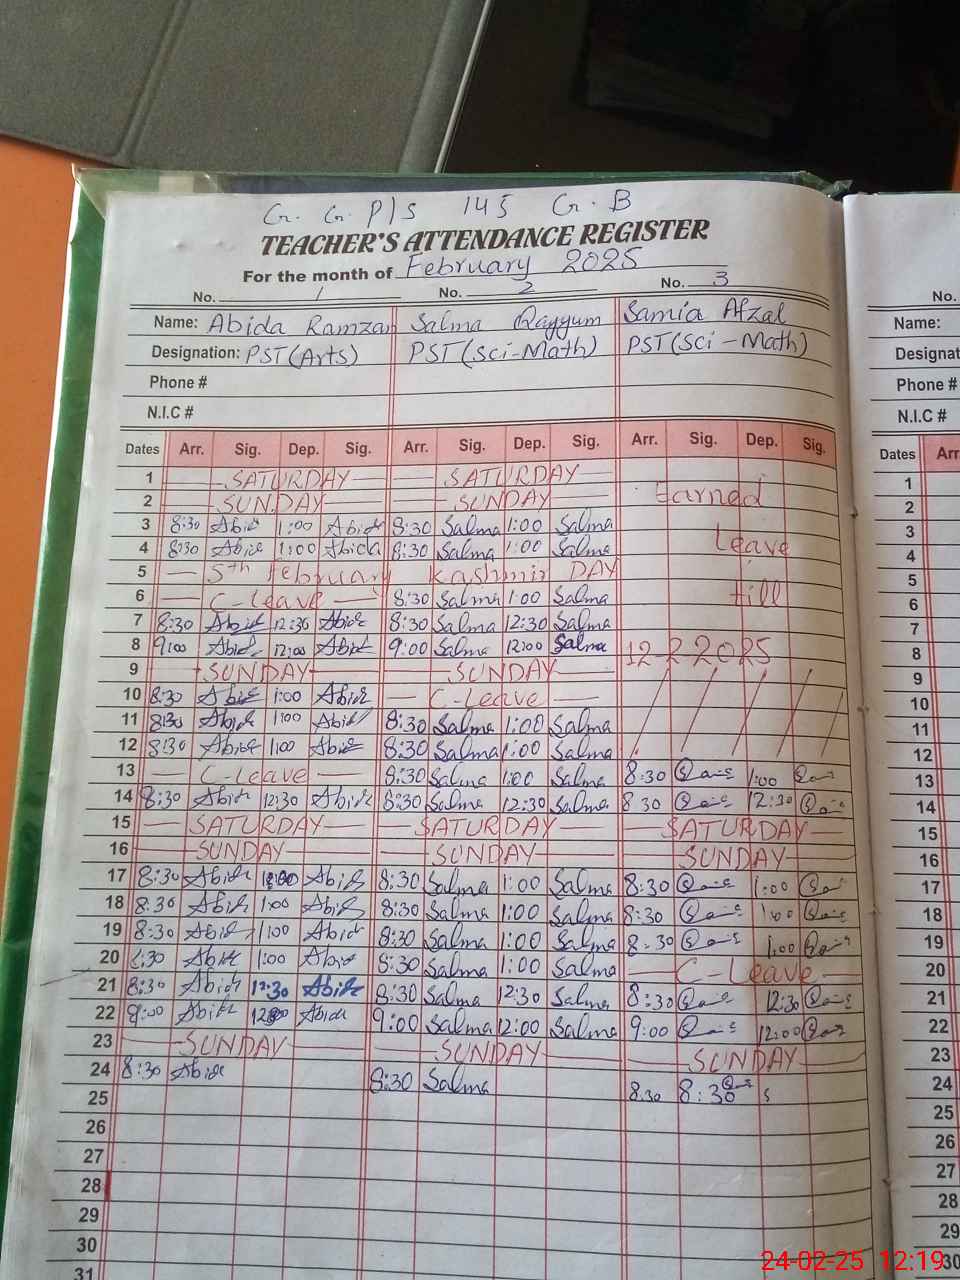 G. G. P/S 145 G. B
TEACHER'S ATTENDANCE REGISTER
For the month of February 2025
No. 1 No. 2 No. 3
Name: Abida Ramzan Salma Qayyum Samia Afzal
Designation: PST(Arts) PST(Sci-Math) PST(Sci-Math)
Phone #
N.I.C #
Dates Arr. Sig. Dep. Sig. Arr. Sig. Dep. Sig. Arr. Sig. Dep. Sig.
1 SATURDAY SATURDAY
2 SUNDAY SUNDAY Earned
3 8:30 Abida 1:00 Abida 8:30 Salma 1:00 Salma
4 8:30 Abida 1:00 Abida 8:30 Salma 1:00 Salma Leave
5 5th February Kashmir DAY
6 C-Leave 8:30 Salma 1:00 Salma till
7 8:30 Abida 12:30 Abida 8:30 Salma 12:30 Salma
8 9:00 Abida 12:00 Abida 9:00 Salma 12:00 Salma 12-2-2025
9 SUNDAY SUNDAY
10 8:30 Abida 1:00 Abida C-Leave
11 8:30 Abida 1:00 Abida 8:30 Salma 1:00 Salma
12 8:30 Abida 1:00 Abida 8:30 Salma 1:00 Salma
13 C-Leave 8:30 Salma 1:00 Salma 8:30 1:00
14 8:30 Abida 12:30 Abida 8:30 Salma 12:30 Salma 8 30 12:30
15 SATURDAY SATURDAY SATURDAY
16 SUNDAY SUNDAY SUNDAY
17 8:30 Abida Abida 8:30 Salma 1:00 Salma 8:30 1:00
18 8:30 Abida 1:00 Abida 8:30 Salma 1:00 Salma 8:30 1:00
19 8:30 Abida 1:00 Abida 8:30 Salma 1:00 Salma 8:30 1:00
20 8:30 Abida 1:00 Abida 8:30 Salma 1:00 Salma C-Leave
21 8:30 Abida 12:30 Abida 8:30 Salma 12:30 Salma 8:30 12:30
22 9:00 Abida Abida 9:00 Salma 12:00 Salma 9:00 12:00
23 SUNDAY SUNDAY SUNDAY
24 8:30 Abida 8:30 Salma 8:30 8:30
25
26
27
28
29
30
31
No.
Name:
Designat
Phone #
N.I.C #
Dates Arr
1
2
3
4
5
6
7
8
9
10
11
12
13
14
15
16
17
18
19
20
21
22
23
24
25
26
27
28
29
30
24-02-25 12:19